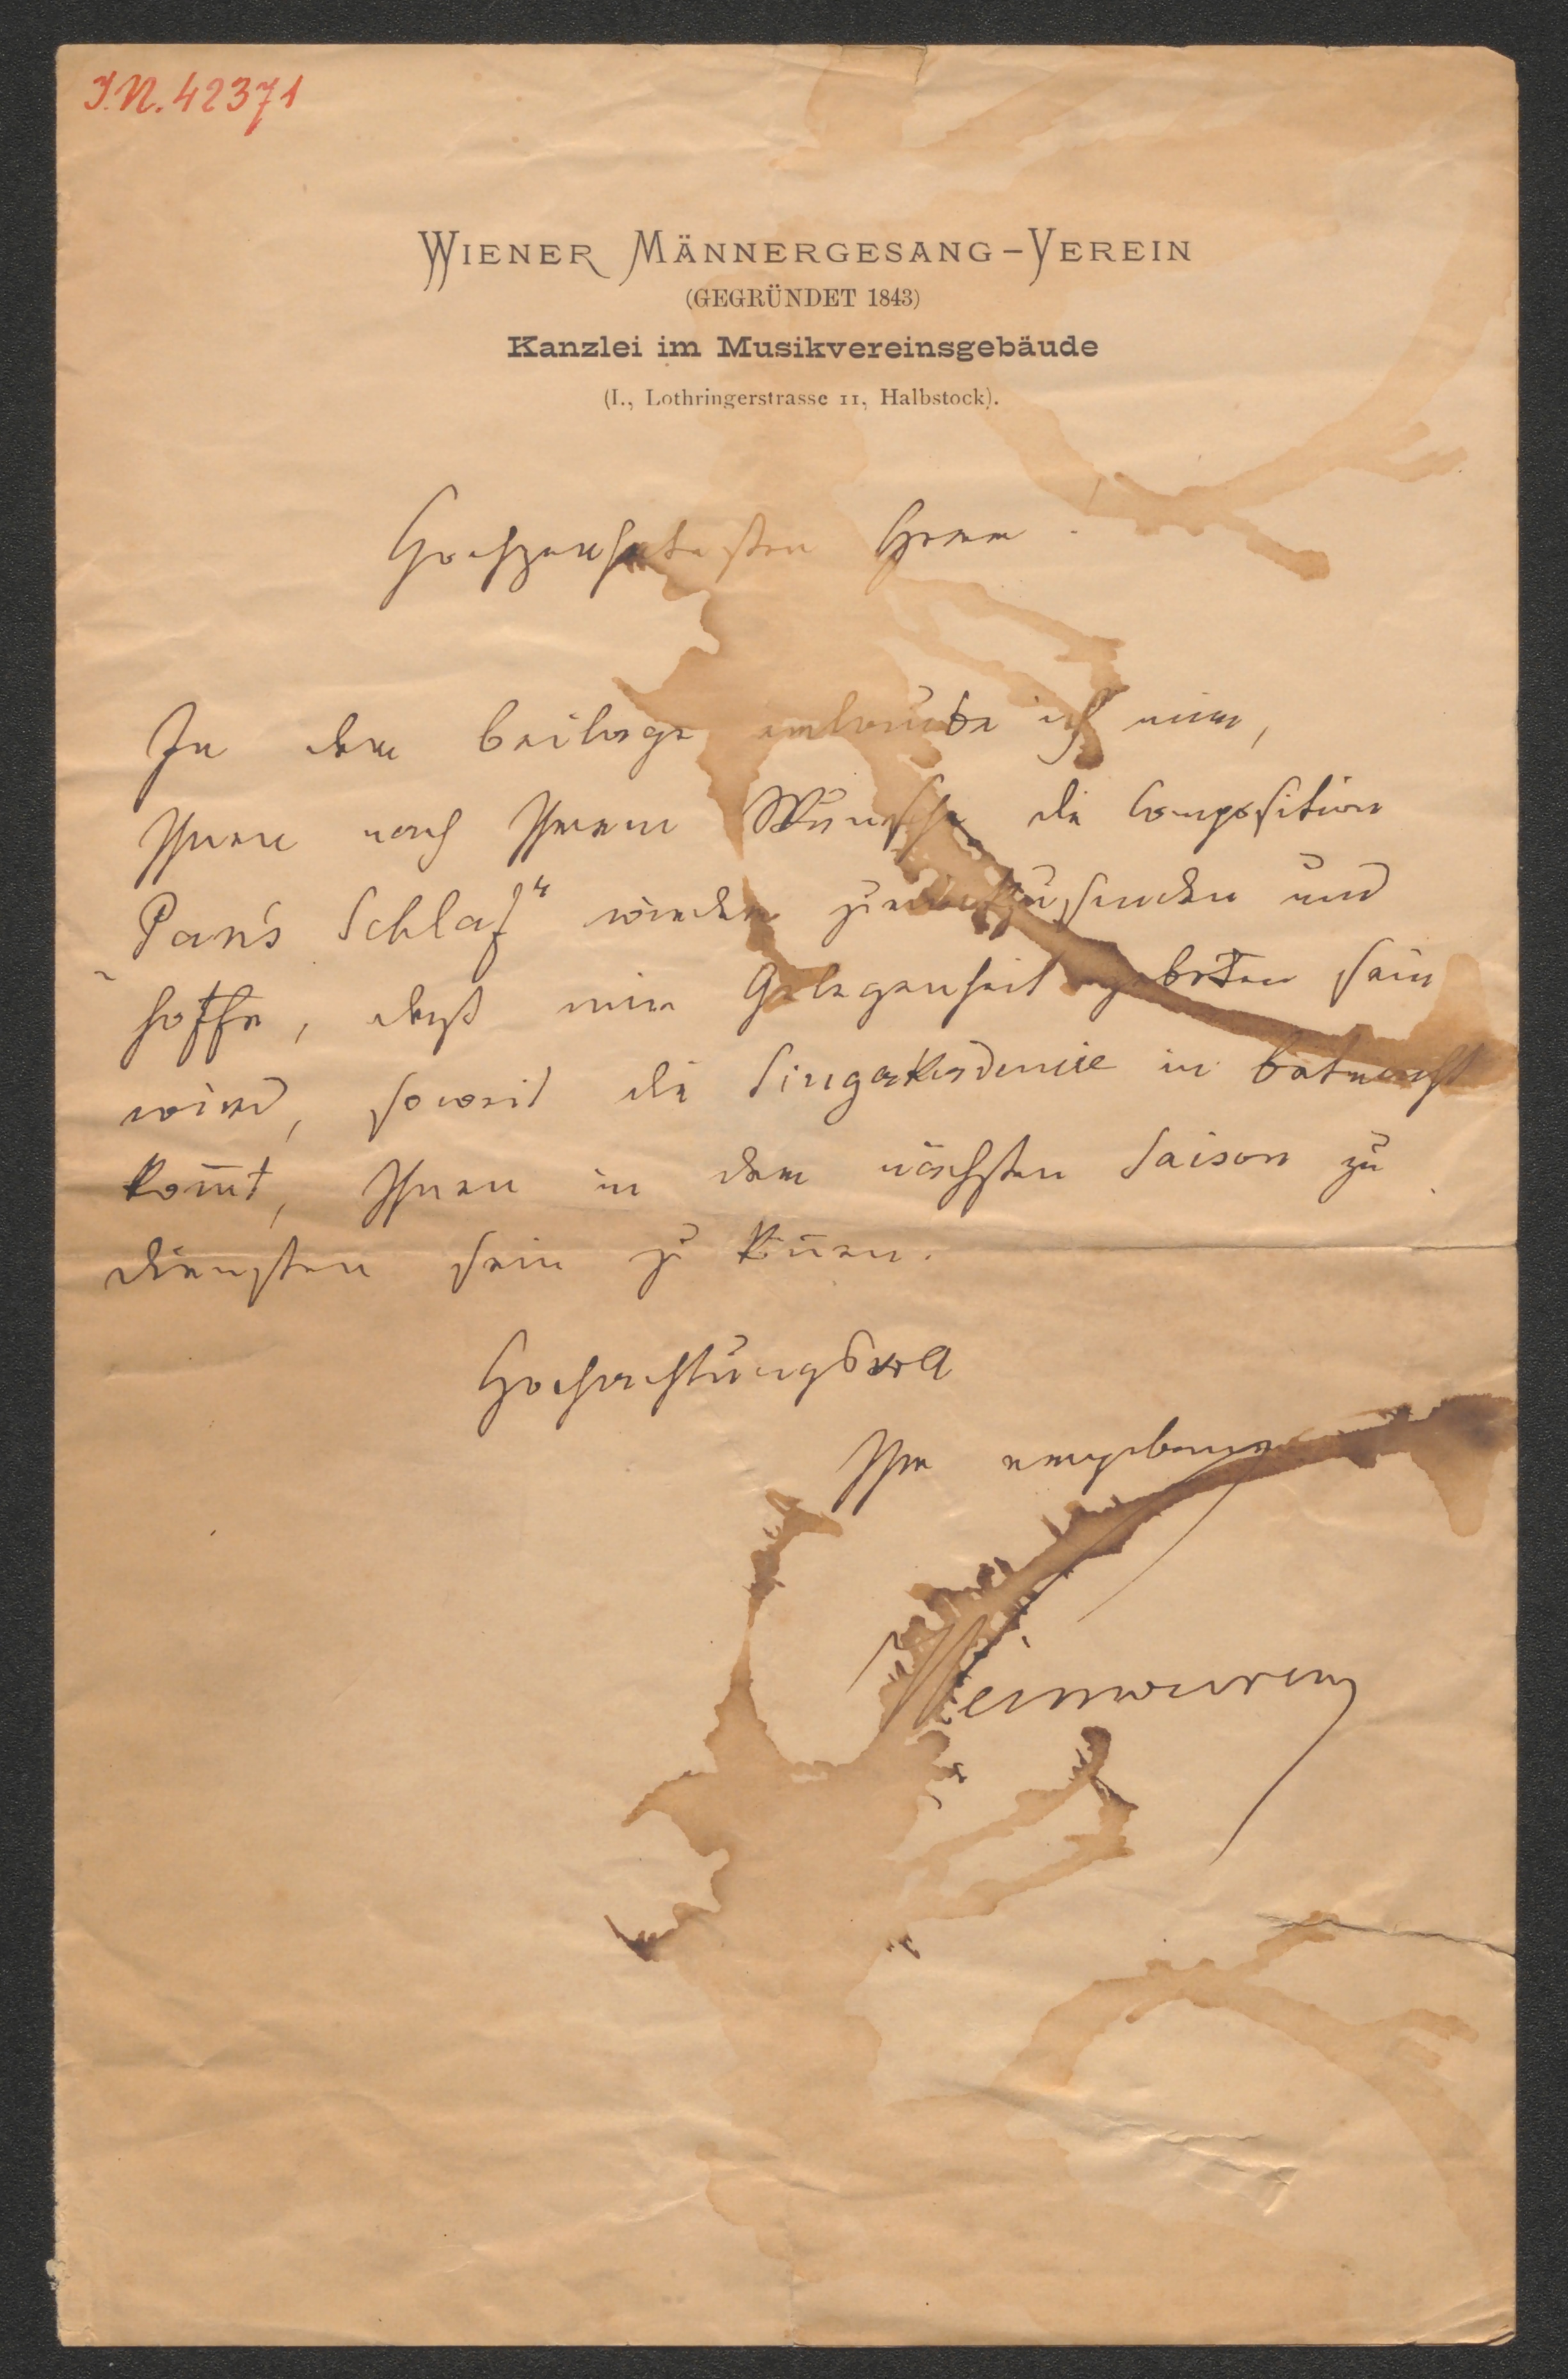 I.N. 42371
WIENER MÄNNERGESANG-VEREIN
(GEGRÜNDET 1843)
Kanzlei im Musikvereinsgebäude
(I., Lothringerstrasse 11, Halbstock).
Hochgeehrtester Herr
In der Beilage erlaube ich mir,
Ihnen nach Ihrem Wunsche die Composition
„Pan's Schlaf“ wieder zurückzusenden und
hoffe, daß mir Gelegenheit geboten sein
wird, soweit die Singakademie in Betracht
kom̅t, Ihnen in der nächsten Saison zu
Diensten sein zu kön̅en.
Hochachtungsvoll
Ihr ergebener
Weinwurm